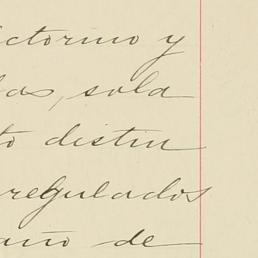 ictorino y
as, sola
to distin
regulados
año de